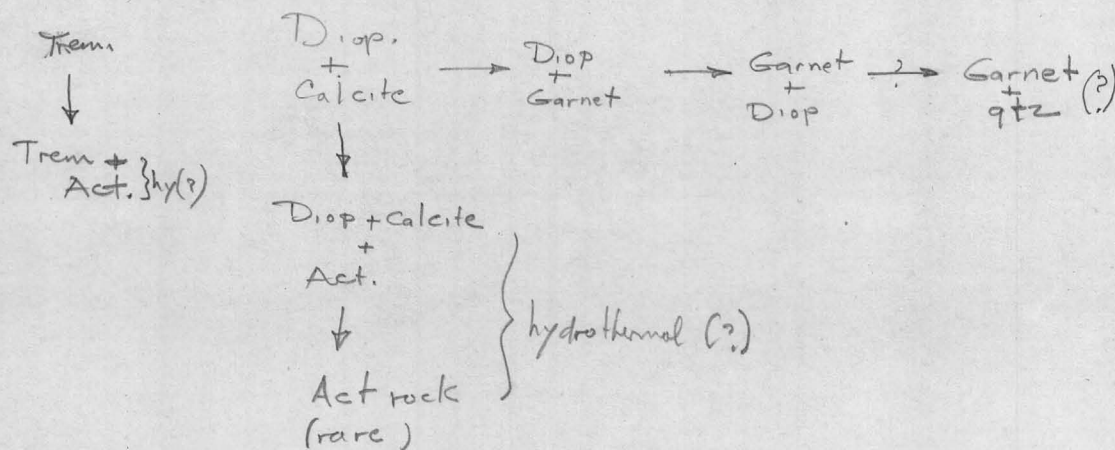 Trem.
↓
Trem +
Act. } hy(?)
Diop.
+
Calcite
→
Diop
+
Garnet
→
Garnet
+
Diop
?
→
Garnet
+
qtz (?)
↓
Diop + Calcite
+
Act.
↓
Act rock
(rare)
} hydrothermal (?)